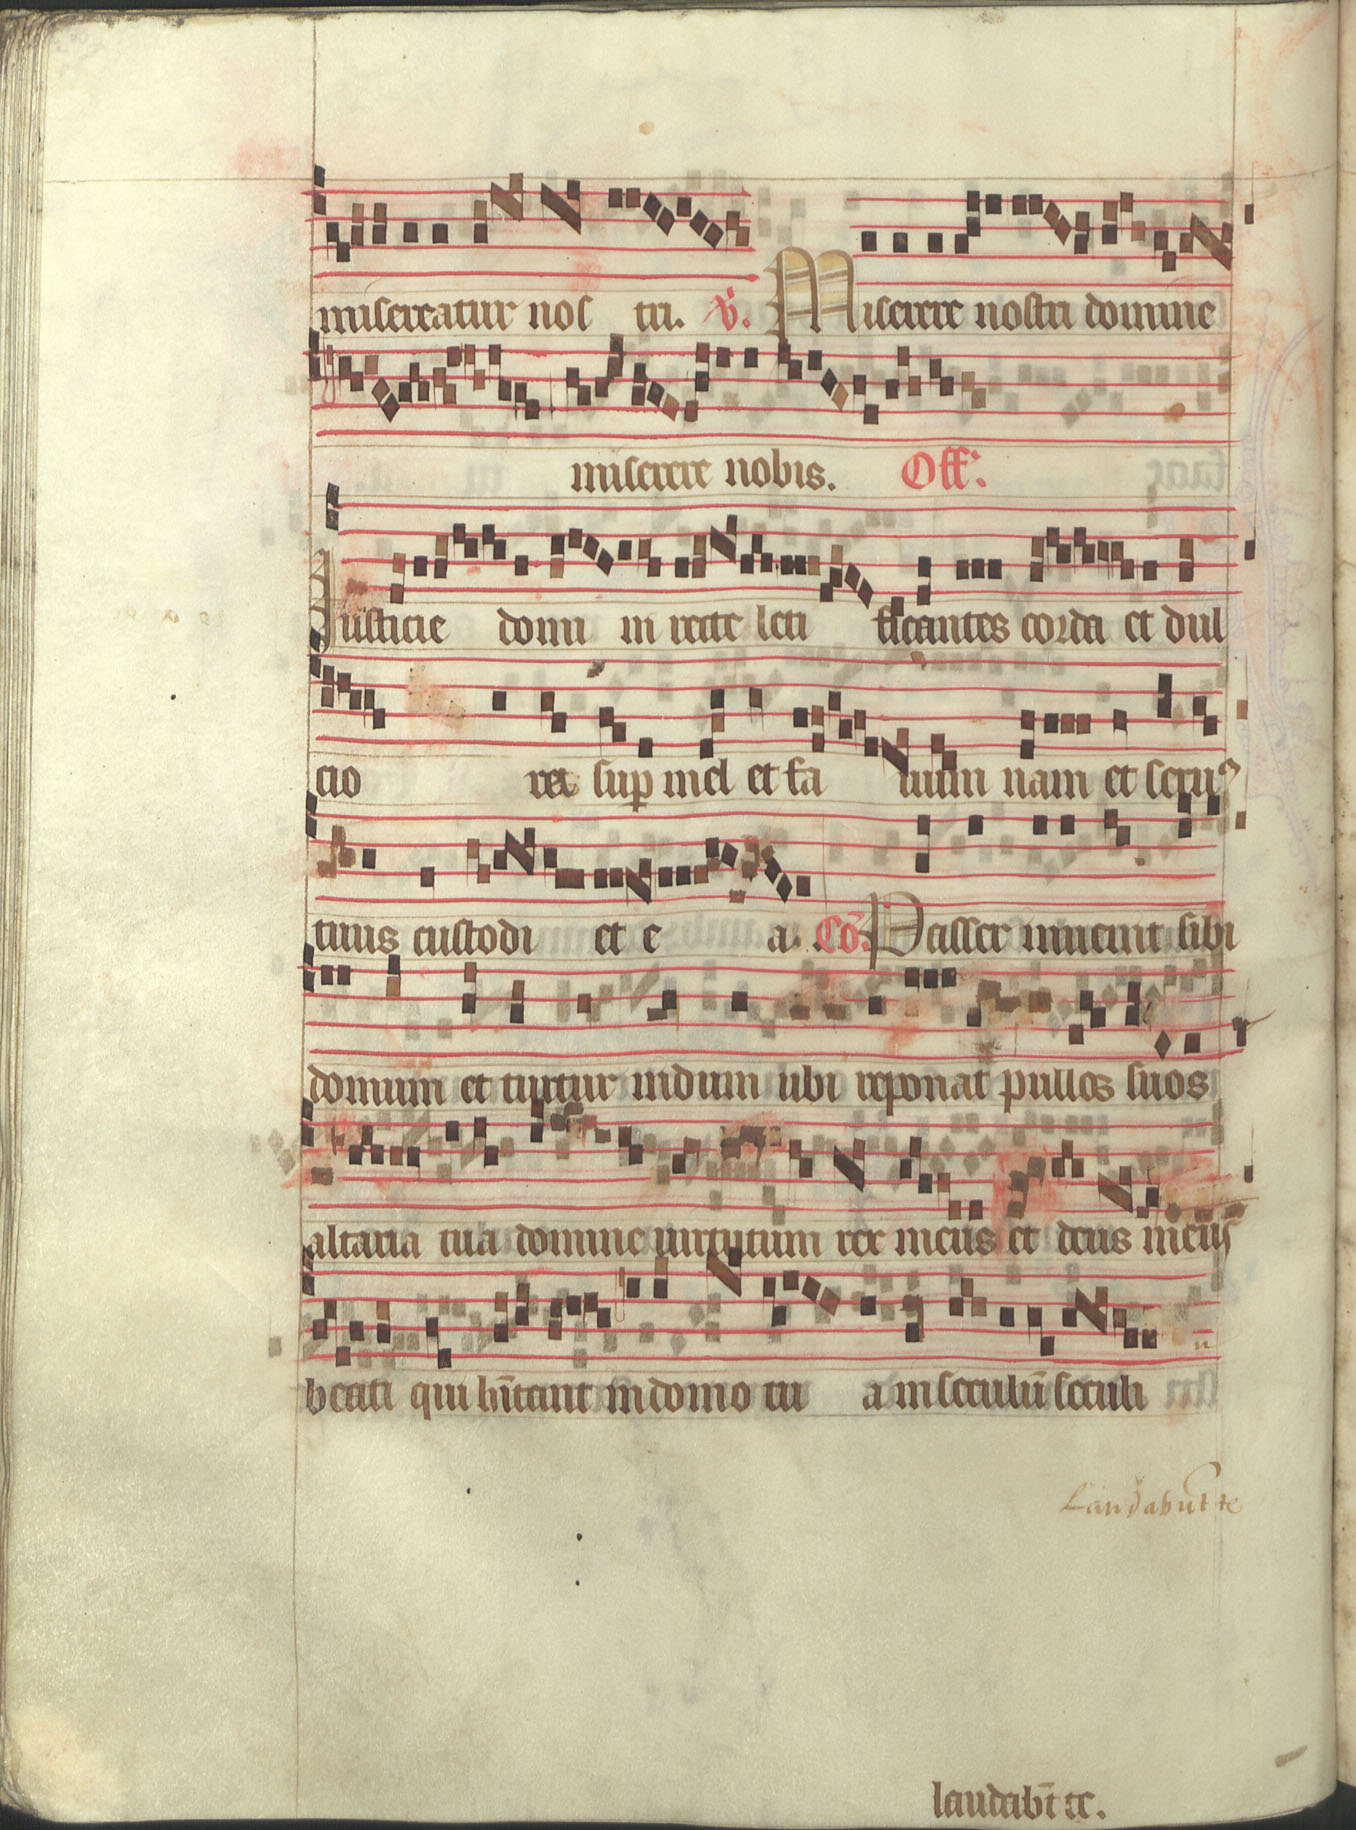 misereatur nos tri. v̈. Miserere nostri domine
miserere nobis. Off.
Iusticie domi ni recte leti ficantes corda et dul
cio res sup mel et fa uum nam et seruꝰ
tuus custodi et e a. Cō. Passer inuenit sibi
domum et turtur nidum ubi reponat pullos suos
altaria tua domine uirtutum rex meus et deus meus
beati qui hītant in domo tu a in seculū seculi
Laudabūt te
laudabt̄ te.